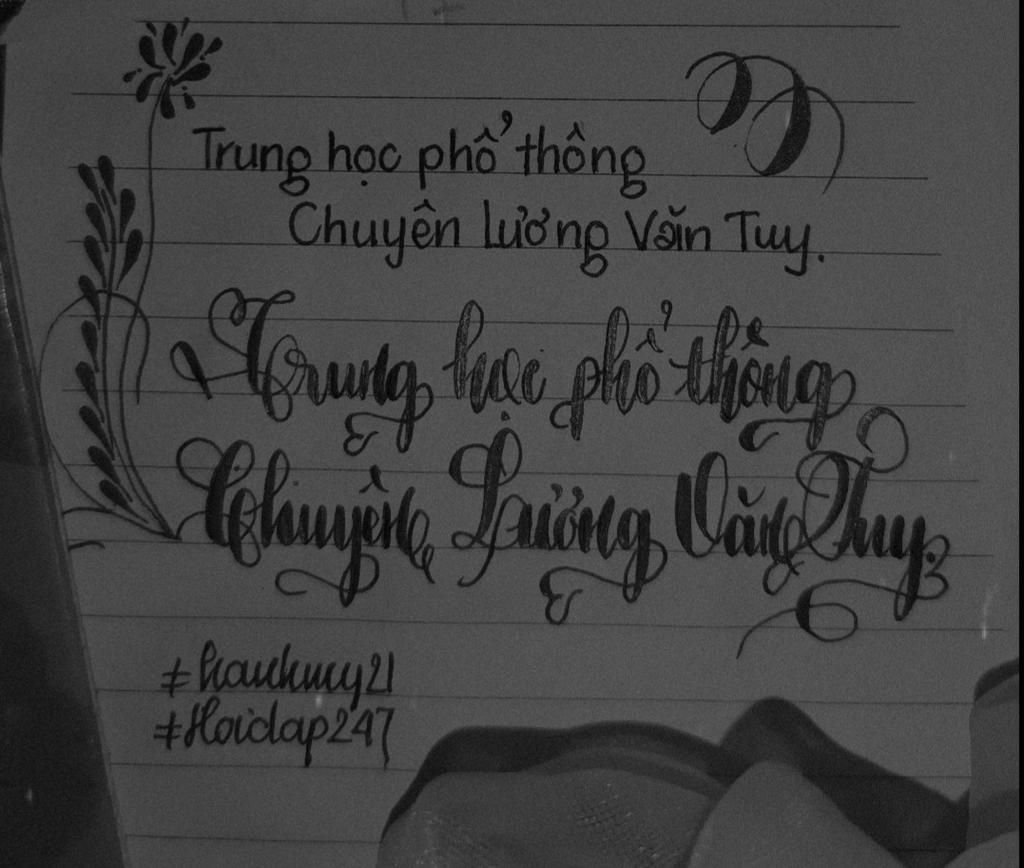 Trung học phổ thông
Chuyên Lương Văn Tuy.
Trung học phổ thông
Chuyên Lương Văn Tuy.
#hanhmy21
#Hoidap247